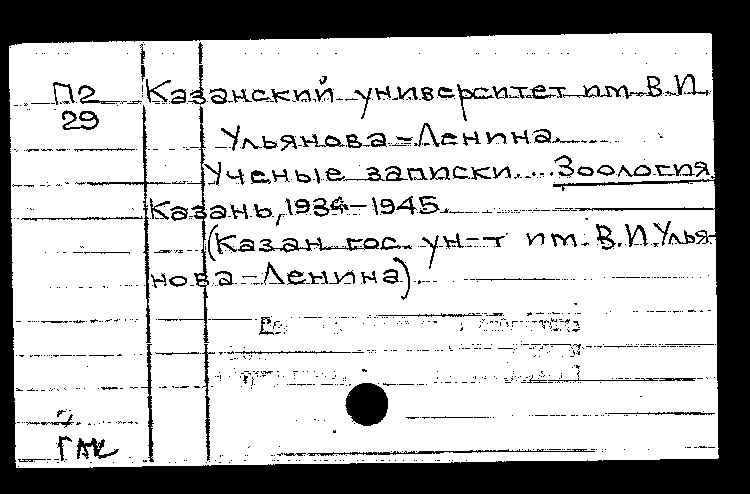 П2 Казанский университет им. В.И.
29
Ульянова-Ленина.
Ученые записки.... Зоология
Казань, 1934-1945.
(Казан. гос. ун-т им. В.И. Улья-
нова-Ленина).
ГАК